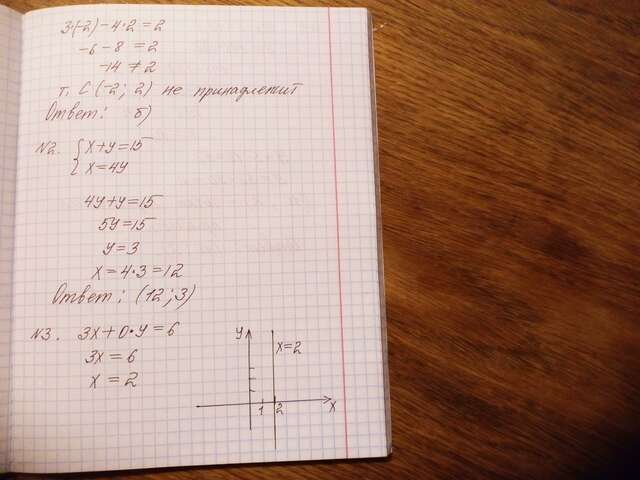 3·(-2) - 4·2 = 2
-6 - 8 = 2
-14 ≠ 2
т. С (-2; 2) не принадлежит
Ответ: б)
N2. { x+y=15
x=4y
4y+y=15
5y=15
y=3
x=4·3=12
Ответ: (12; 3)
N3. 3x+0·y=6
3x=6
x=2
y
x=2
1 2 x